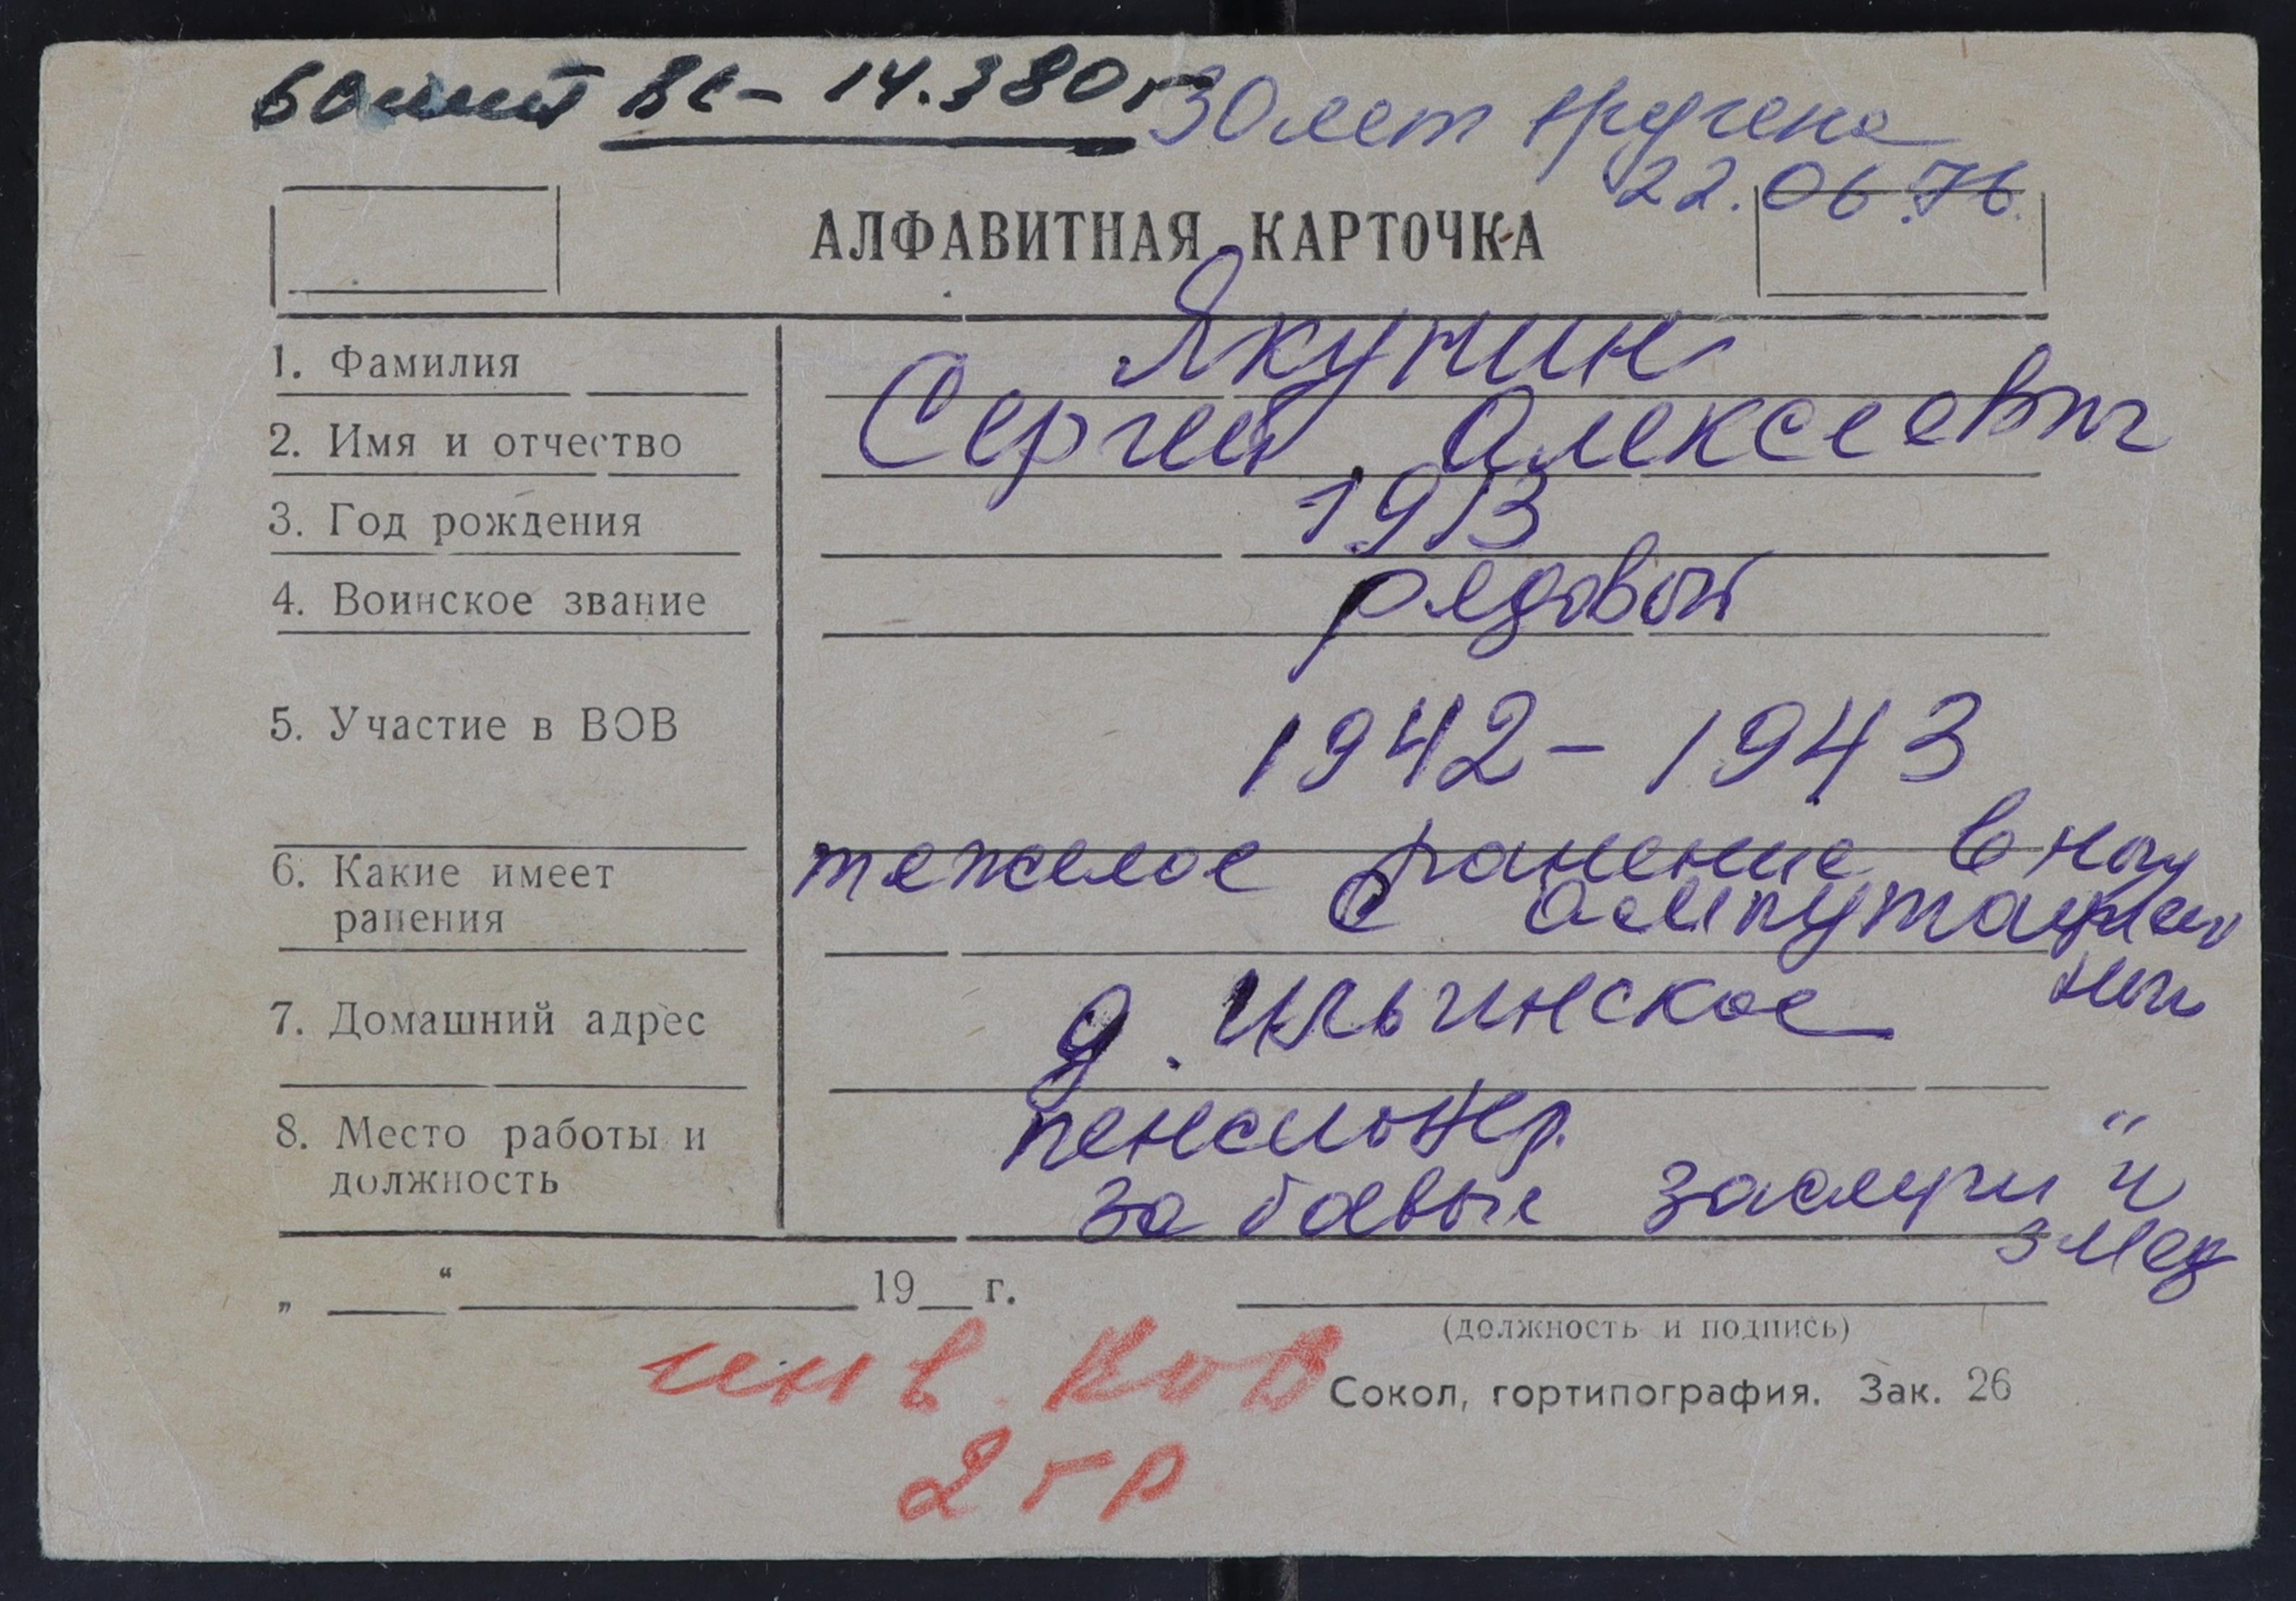 60 лет ВС - 14.3 80 г
30 лет вручена
22.06.76.
АЛФАВИТНАЯ КАРТОЧКА
1. Фамилия Якунин
2. Имя и отчество Сергей Алексеевич
3. Год рождения 1913
4. Воинское звание рядовой
5. Участие в ВОВ 1942 - 1943
6. Какие имеет тяжелое ранение в ногу
ранения с ампутацией
ноги
7. Домашний адрес д. Ильинское
8. Место работы и пенсионер.
должность за боевые заслуги" и
3 мед
„ “ 19 г.
(должность и подпись)
инв. ВОВ
2 гр
Сокол, гортипография. Зак. 26